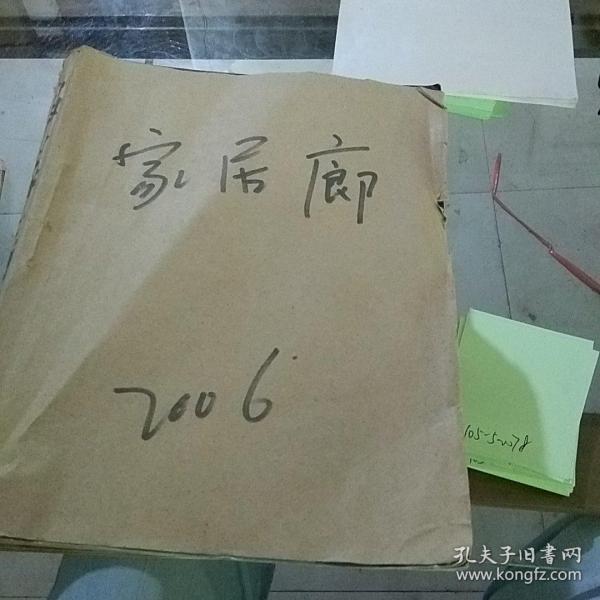 家居廊
2006
105-5-2078
孔夫子旧书网
www.kongfz.com